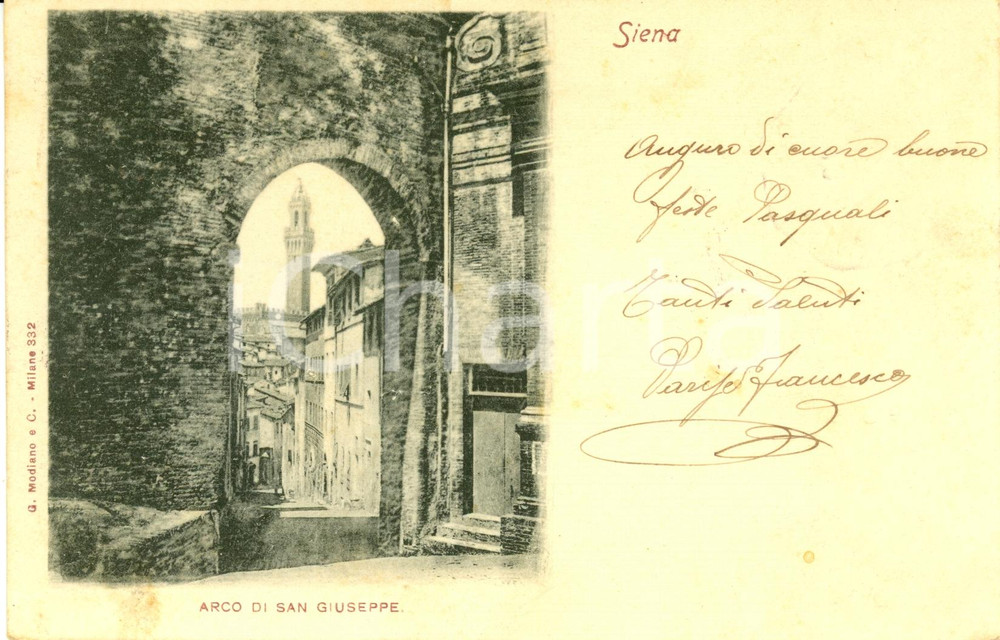 Siena
Auguro di cuore buone
feste Pasquali
Tanti Saluti
Parise Francesco
G. Modiano e C. - Milano 332
ARCO DI SAN GIUSEPPE.
iCharta